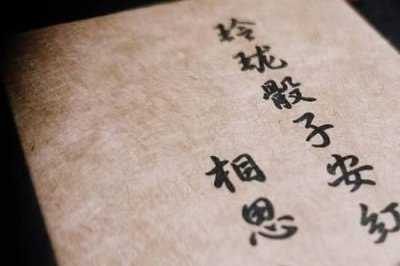 玲珑骰子安红
相思